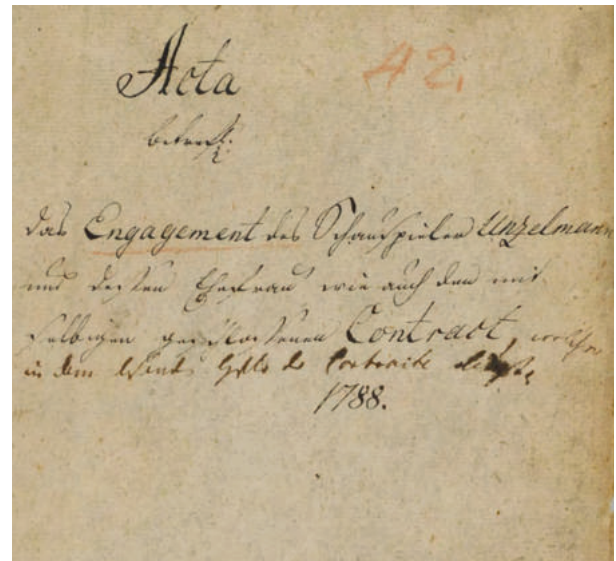 Acta 42.
betreff:
das Engagement des Schauspieler Unzelmann
und dessen Ehefrau wie auch den mit
selbigen geschlossenen Contract, welcher
in dem
1788.